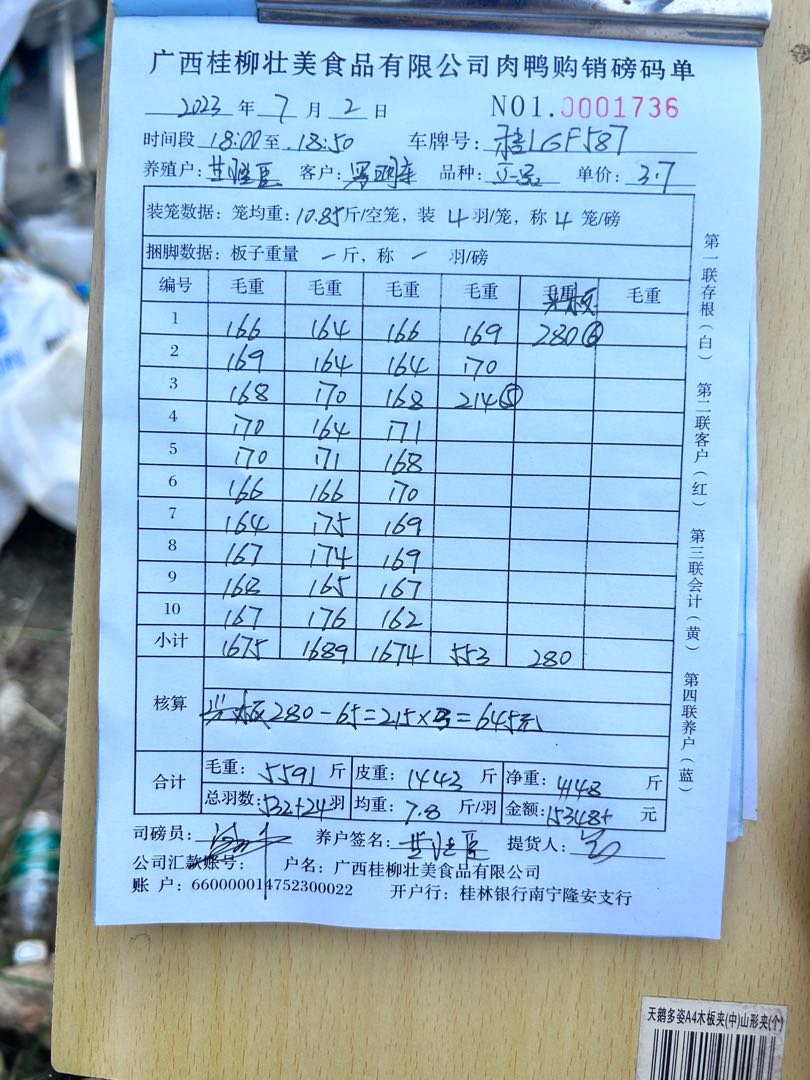 广西桂柳壮美食品有限公司肉鸭购销磅码单
2023 年 7 月 2 日 NO1.0001736
时间段 18:00 至 18:50 车牌号: 桂LGF587
养殖户: 客户: 品种: 单价: 3.7
装笼数据: 笼均重: 10.85 斤/空笼, 装 4 羽/笼, 称 4 笼/磅
捆脚数据: 板子重量 一 斤, 称 一 羽/磅
编号 毛重 毛重 毛重 毛重 毛重 毛重
1 166 164 166 169 280⑥
2 169 164 164 170
3 168 170 168 214⑤
4 170 164 171
5 170 171 168
6 166 166 170
7 164 175 169
8 167 174 169
9 168 165 167
10 167 176 162
小计 1675 1689 1674 553 280
核算 板280-65=215×3=645元
合计 毛重: 5591 斤 皮重: 1443 斤 净重: 4148 斤
总羽数: 532+24 羽 均重: 7.8 斤/羽 金额: 15348+ 元
司磅员: 养户签名: 提货人:
公司汇款账号: 户名: 广西桂柳壮美食品有限公司
账 户: 660000014752300022 开户行: 桂林银行南宁隆安支行
第一联存根(白) 第二联客户(红) 第三联会计(黄) 第四联养户(蓝)
天鹅多姿A4木板夹(中)山形夹(个)